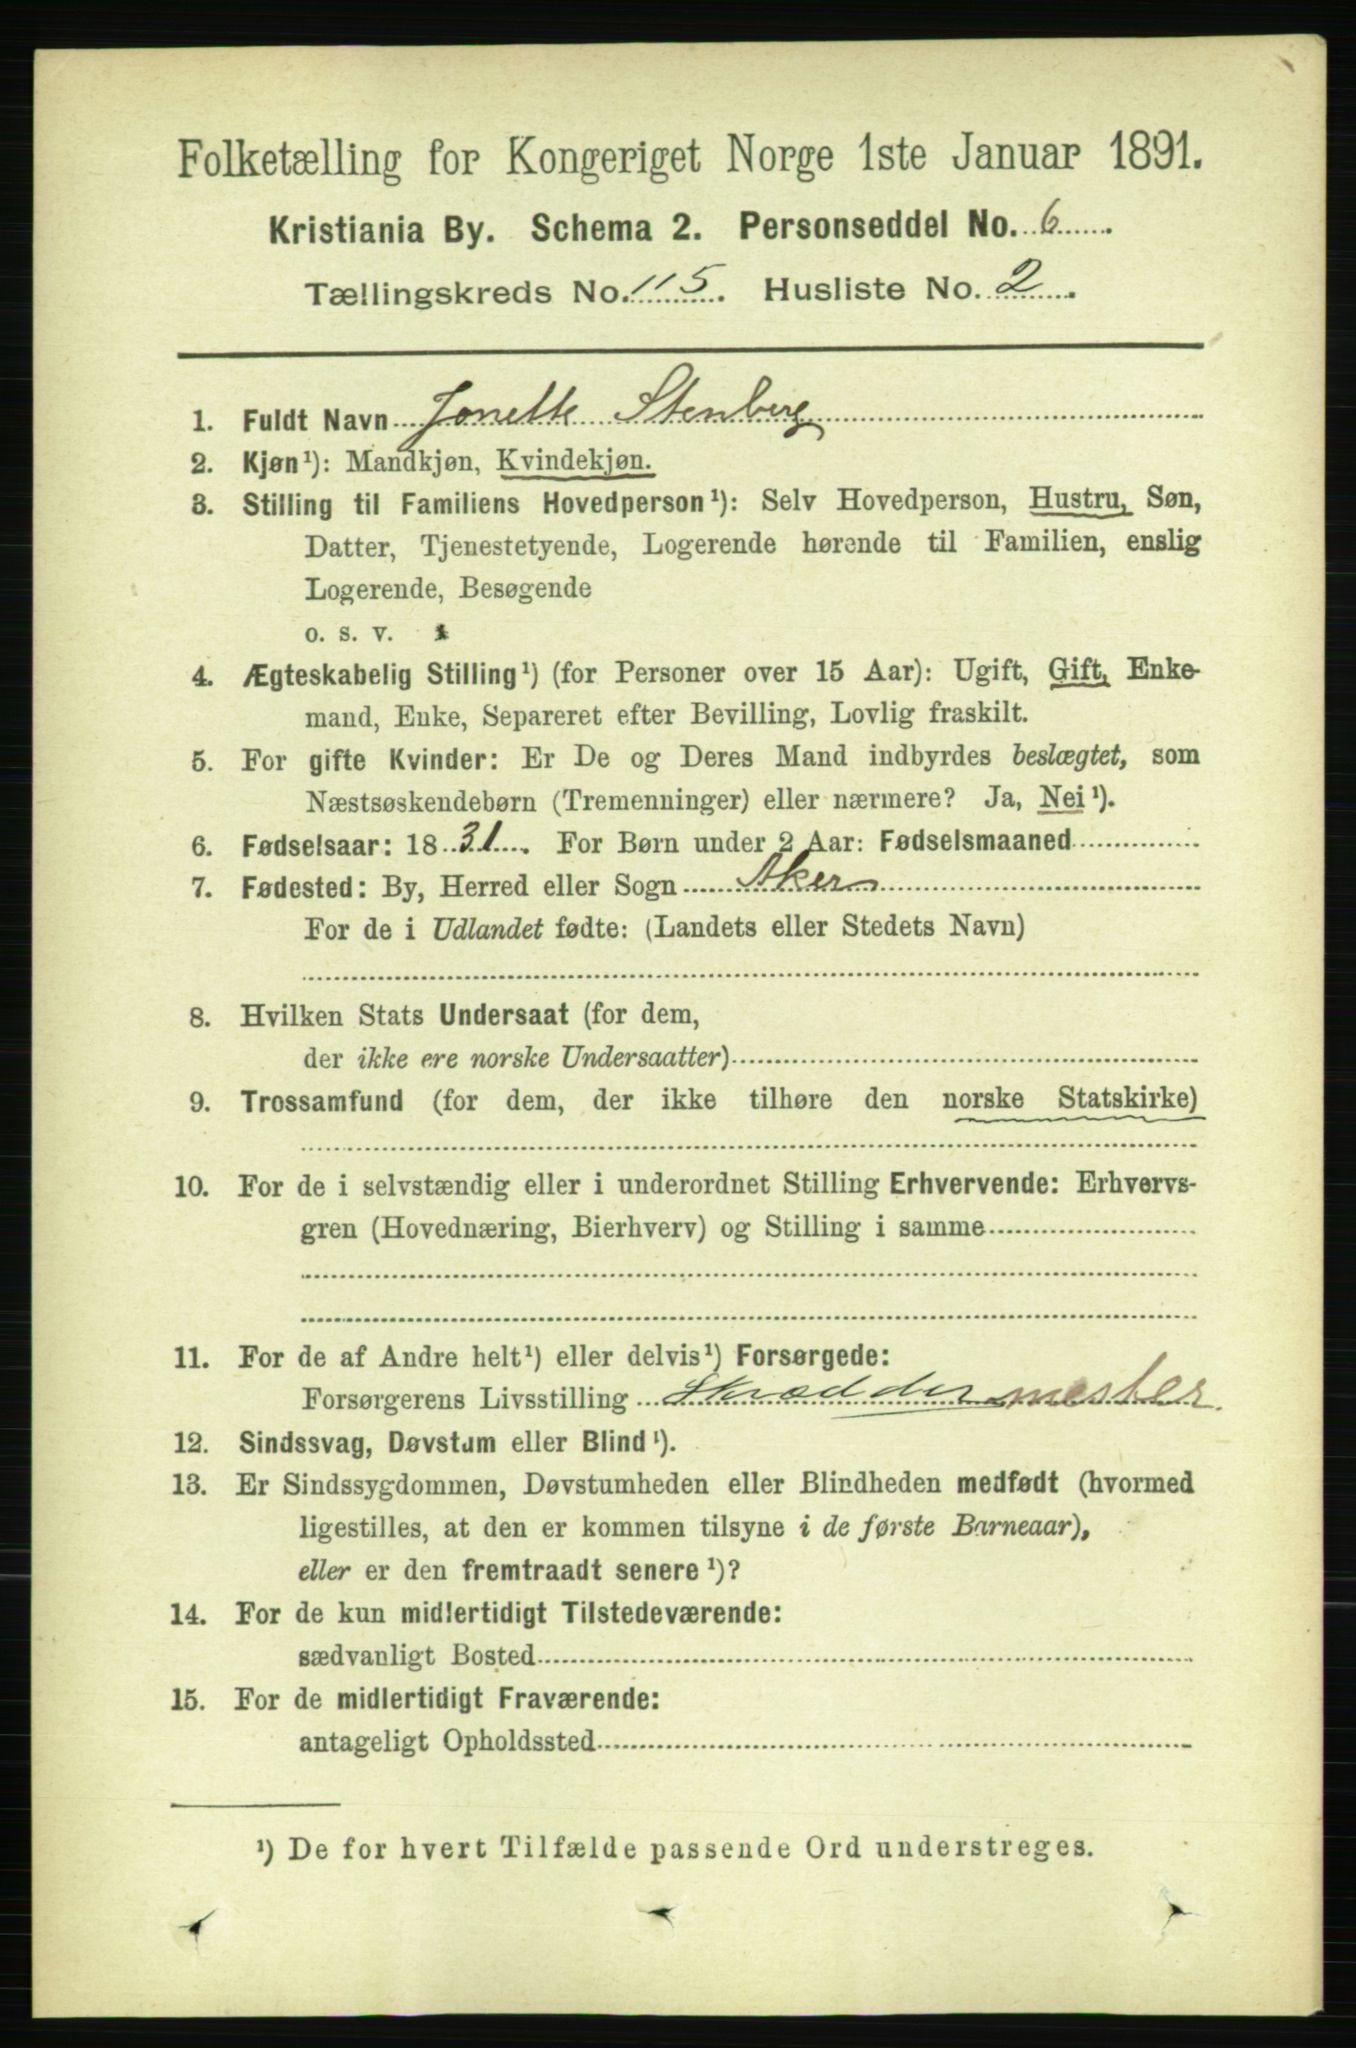 Folketælling for Kongeriget Norge 1ste Januar 1891.
Kristiania By. Schema 2. Personseddel No. 6
Tællingskreds No. 115. Husliste No. 2.
1. Fuldt Navn Jonette Stenberg
2. Kjøn¹): Mandkjøn, Kvindekjøn.
3. Stilling til Familiens Hovedperson¹): Selv Hovedperson, Hustru, Søn,
Datter, Tjenestetyende, Logerende hørende til Familien, enslig
Logerende, Besøgende
o. s. v.
4. Ægteskabelig Stilling¹) (for Personer over 15 Aar): Ugift, Gift, Enke-
mand, Enke, Separeret efter Bevilling, Lovlig fraskilt.
5. For gifte Kvinder: Er De og Deres Mand indbyrdes beslægtet, som
Næstsøskendebørn (Tremenninger) eller nærmere? Ja, Nei¹).
6. Fødselsaar: 1831. For Børn under 2 Aar: Fødselsmaaned
7. Fødested: By, Herred eller Sogn Aker
For de i Udlandet fødte: (Landets eller Stedets Navn)
8. Hvilken Stats Undersaat (for dem,
der ikke ere norske Undersaatter)
9. Trossamfund (for dem, der ikke tilhøre den norske Statskirke)
10. For de i selvstændig eller i underordnet Stilling Erhvervende: Erhvervs-
gren (Hovednæring, Bierhverv) og Stilling i samme
11. For de af Andre helt¹) eller delvis¹) Forsørgede:
Forsørgerens Livsstilling Skræddermester.
12. Sindssvag, Døvstum eller Blind¹).
13. Er Sindssygdommen, Døvstumheden eller Blindheden medfødt (hvormed
ligestilles, at den er kommen tilsyne i de første Barneaar),
eller er den fremtraadt senere¹)?
14. For de kun midlertidigt Tilstedeværende:
sædvanligt Bosted
15. For de midlertidigt Fraværende:
antageligt Opholdssted
¹) De for hvert Tilfælde passende Ord understreges.